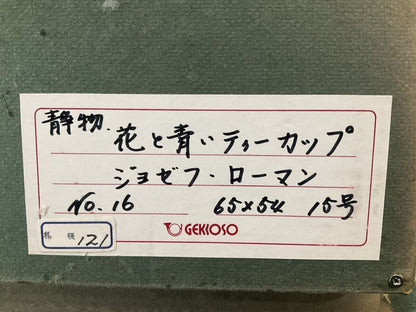 静物.
花と青いティーカップ
ジョゼフ・ローマン
No.16 65×54 15号
GEKKOSO
札幌 121